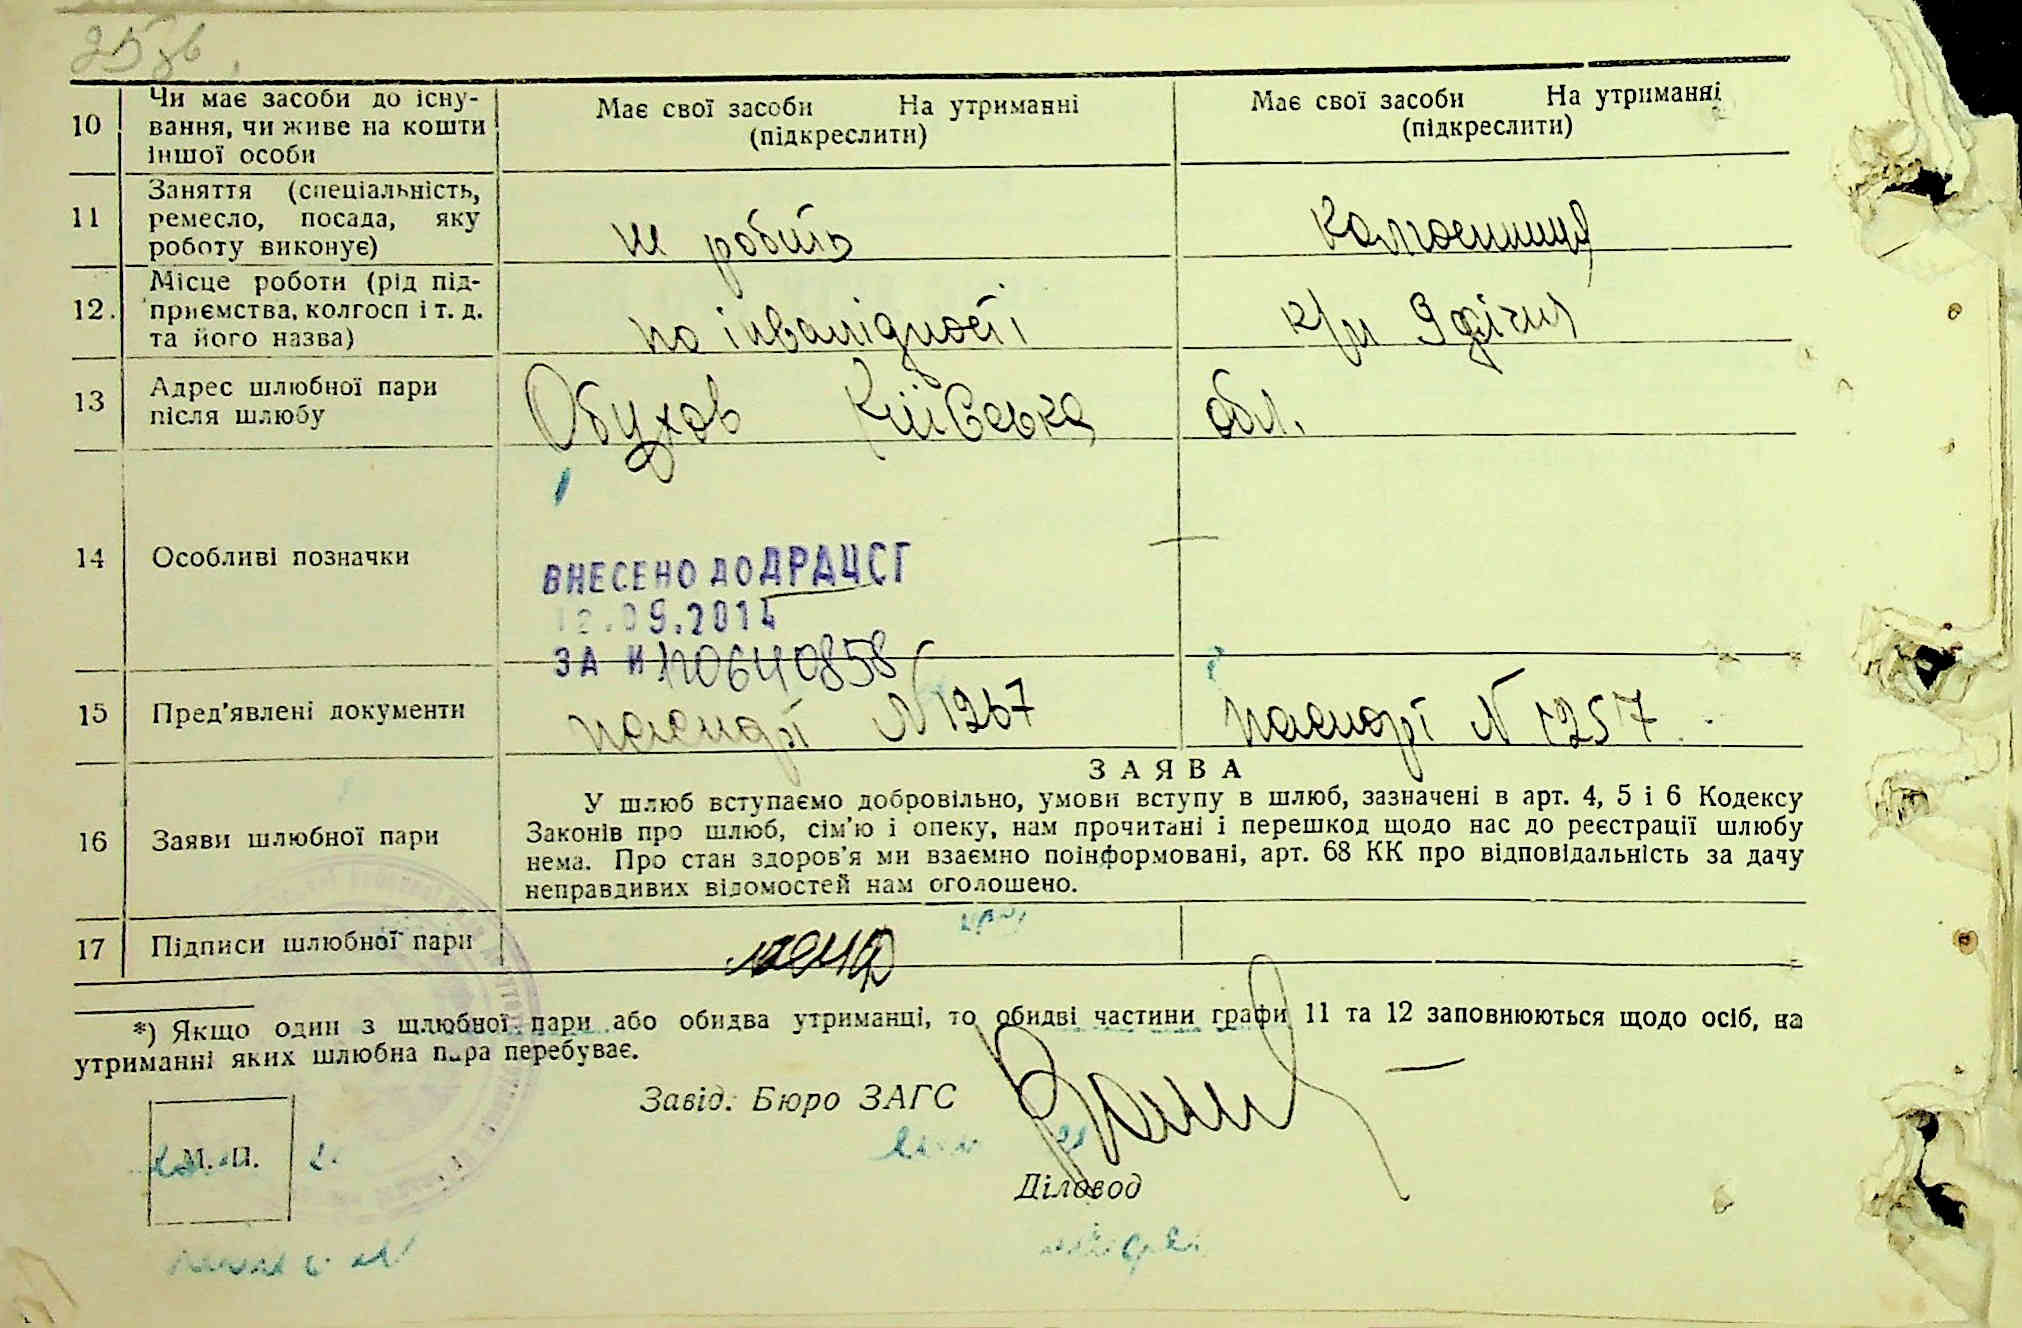 25 зв.
10 Чи має засоби до існу-
вання, чи живе на кошти
іншої особи
Має свої засоби На утриманні
(підкреслити)
Має свої засоби На утриманні
(підкреслити)
11 Заняття (спеціальність,
ремесло, посада, яку
роботу виконує)
не робить
колгоспниця
12. Місце роботи (рід під-
приємства, колгосп і т. д.
та його назва)
по інвалідності
к/г
13 Адрес шлюбної пари
після шлюбу
Обухов Київська обл.
14 Особливі позначки
ВНЕСЕНО ДО ДРАЦСГ
12.09.2014
ЗА № 00640858
15 Пред'явлені документи
паспорт N 1267
паспорт N 1257
16 Заяви шлюбної пари
ЗАЯВА
У шлюб вступаємо добровільно, умови вступу в шлюб, зазначені в арт. 4, 5 і 6 Кодексу
Законів про шлюб, сім'ю і опеку, нам прочитані і перешкод щодо нас до реєстрації шлюбу
нема. Про стан здоров'я ми взаємно поінформовані, арт. 68 КК про відповідальність за дачу
неправдивих відомостей нам оголошено.
17 Підписи шлюбної пари
*) Якщо один з шлюбної пари або обидва утриманці, то обидві частини графи 11 та 12 заповнюються щодо осіб, на
утриманні яких шлюбна пара перебуває.
Завід. Бюро ЗАГС
М. П.
Діловод